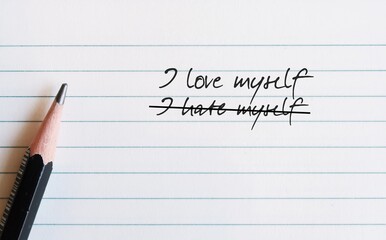 I love myself
I hate myself